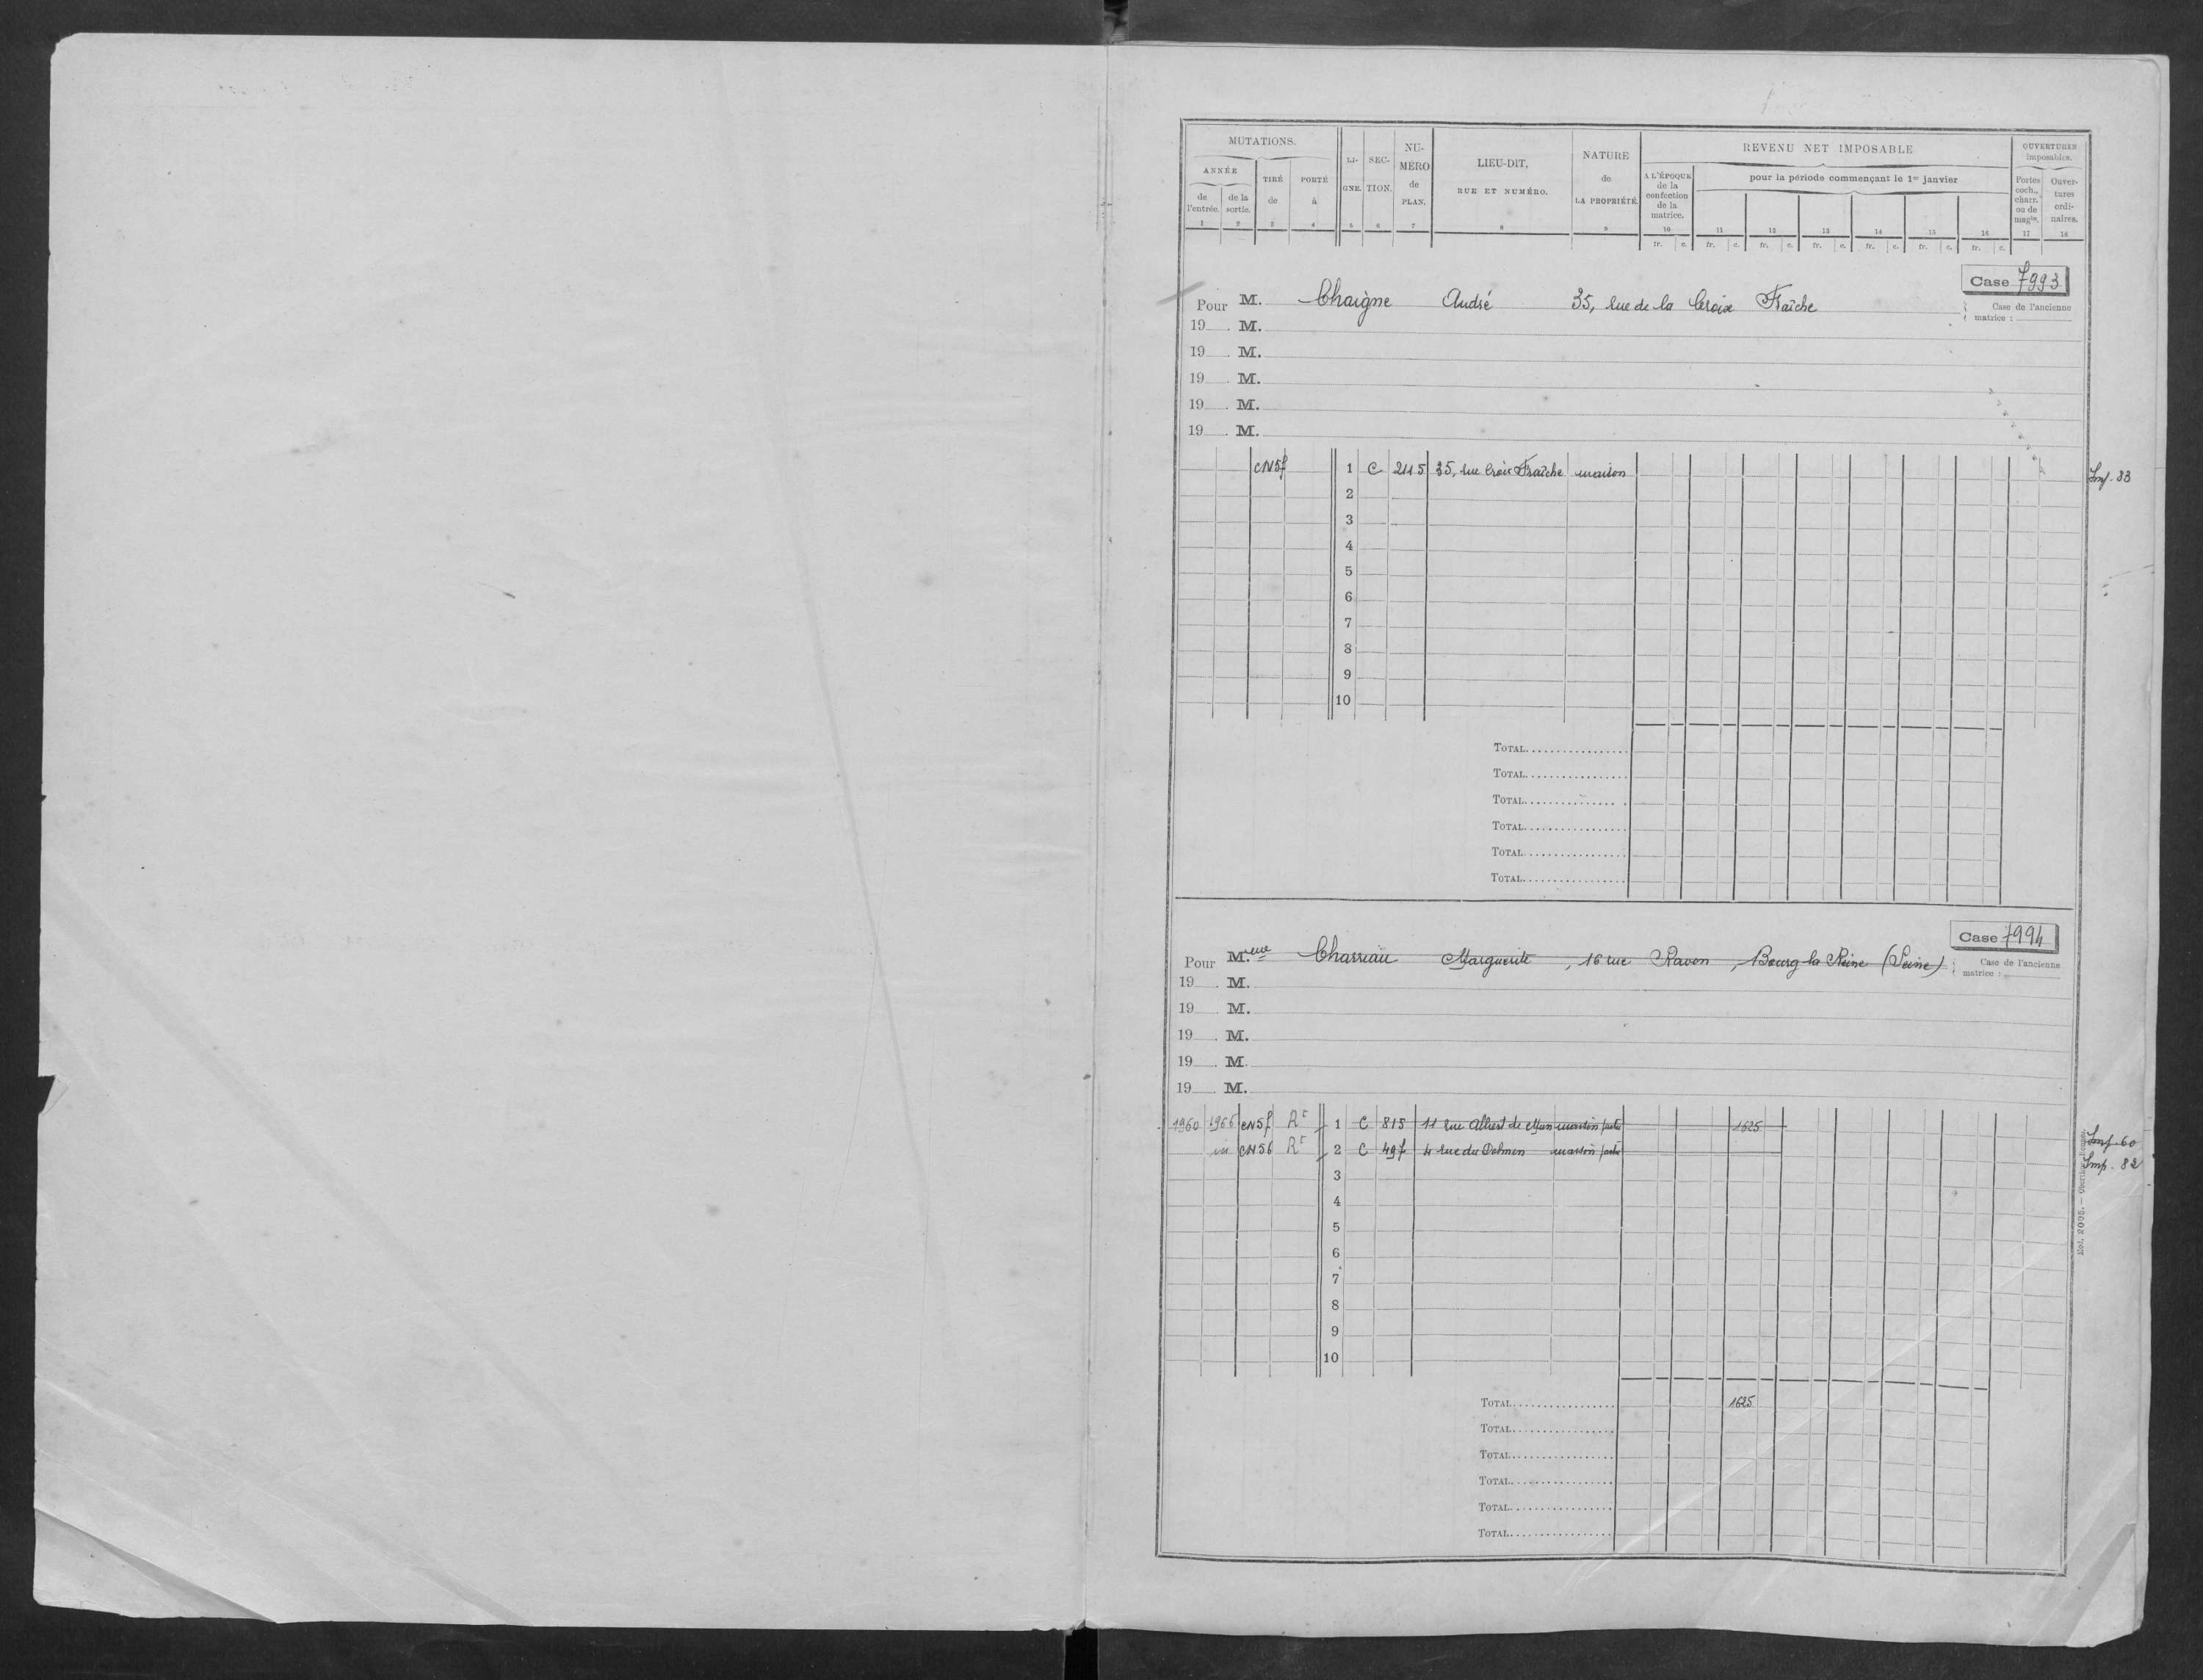 MUTATIONS.
ANNÉE
de l'entrée.
de la sortie.
TIRÉ de
PORTÉ à
LIGNE.
SECTION.
NUMÉRO de PLAN.
LIEU-DIT, RUE ET NUMÉRO.
NATURE de LA PROPRIÉTÉ.
REVENU NET IMPOSABLE
A L'ÉPOQUE de la confection de la matrice.
pour la période commençant le 1er janvier
OUVERTURES imposables.
Portes coch., charr. ou de magin.
Ouvertures ordinaires.
1 2 3 4 5 6 7 8 9 10 11 12 13 14 15 16 17 18
fr. c. fr. c. fr. c. fr. c. fr. c. fr. c. fr. c.
Case 7993
Pour M. Chaigne André 35, rue de la Croix Fraîche
Case de l'ancienne matrice :
19 M.
19 M.
19 M.
19 M.
19 M.
CN57 1 C 2115 35, rue Croix Fraîche maison Imp. 83
2
3
4
5
6
7
8
9
10
TOTAL
TOTAL
TOTAL
TOTAL
TOTAL
TOTAL
Case 7994
Pour M.elle Marguerite, 16 rue Ravon, Bourg la Reine (Seine)
Case de l'ancienne matrice :
19 M.
19 M.
19 M.
19 M.
19 M.
1960 1966 CN57 Rt 1 C 815 11 rue Albert de Mun maison partie 1625 Imp. 60
CN56 Rt 2 C 497 4 rue du Dolmen maison partie Imp. 82
3
4
5
6
7
8
9
10
TOTAL 1625
TOTAL
TOTAL
TOTAL
TOTAL
TOTAL